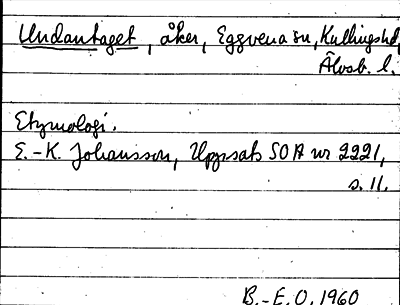 Undantaget, åker, Eggvena sn, Kullings hd,
Älvsb. l.
Etymologi.
E.-K. Johansson, Uppsats SOA nr 2221,
s. 11.
B.-E.O. 1960